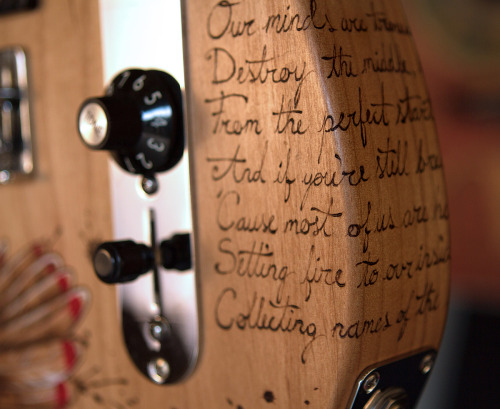 Our minds are
Destroy the middle,
From the perfect start
And if you're still
'Cause most of us are
Setting fire to our
Collecting names of the
6
5
4
3
2